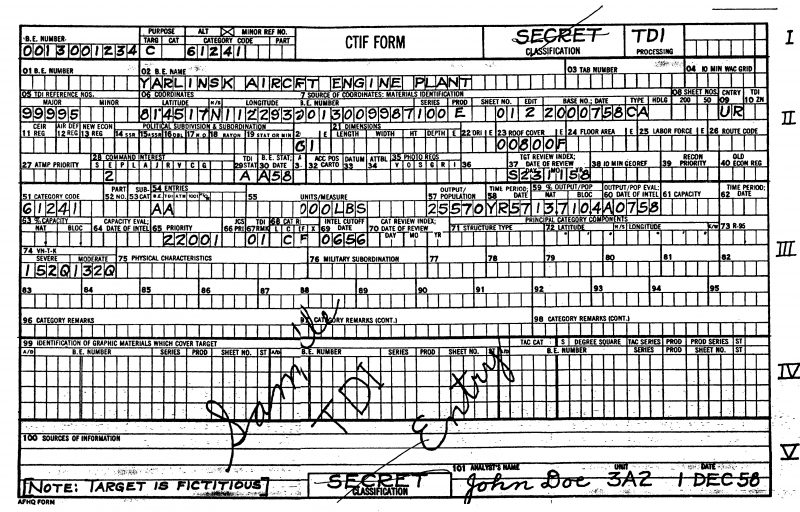 B.E. NUMBER PURPOSE TARG CAT ALT MINOR REF NO. CATEGORY CODE PART CTIF FORM SECRET CLASSIFICATION TDI PROCESSING I
0013001234 C 61241
01 B.E. NUMBER 02 B.E. NAME 03 TAB NUMBER 04 10 MIN WAC GRID
YARLINSK AIRCFT ENGINE PLANT
05 TDI REFERENCE NOS. 06 COORDINATES 7 SOURCE OF COORDINATES: MATERIALS IDENTIFICATION 08 SHEET NOS. CNTRY TDI
MAJOR MINOR LATITUDE N/S LONGITUDE B.E. NUMBER SERIES PROD SHEET NO. EDIT BASE NO.; DATE TYPE HDLG 200 50 09 10 ZN
99995 814517N1122932013009987100E 0122000758CA UR II
CEIR AIR DEF NEW ECON POLITICAL SUBDIVISION & SUBORDINATION 21 DIMENSIONS
11 REG 12 REG 13 REG 14 SSR 16 OBL 17 M.O 18 RAYON 19 STAT OR MIN LENGTH WIDTH HT DEPTH E 22 ORI E 23 ROOF COVER 24 FLOOR AREA E 25 LABOR FORCE E 26 ROUTE CODE
61 00800F
27 ATMP PRIORITY 28 COMMAND INTEREST S E P L A J R V C G TDI STAT B.E. STAT. 30 DATE ACC POS 32 CARTO DATUM 33 ATTBL 34 35 PHOTO REQS V O S G R I 36 TGT REVIEW INDEX; 37 DATE OF REVIEW 38 10 MIN GEOREF RECON 39 PRIORITY OLD 40 ECON REG
2 A A58 S231158
51 CATEGORY CODE PART 52 NO. SUB- 53 CAT 54 ENTRIES 55 UNITS/MEASURE 56 OUTPUT/ 57 POPULATION TIME PERIOD; 58 DATE 59 % OUTPUT/POP NAT BLOC OUTPUT/POP EVAL; 60 DATE OF INTEL 61 CAPACITY TIME PERIOD; 62 DATE
61241 AA 000LBS 25570YR5713.7104A0758
63 % CAPACITY NAT BLOC CAPACITY EVAL; 64 DATE OF INTEL 65 PRIORITY JCS 66 PRI TDI 67 RMK 68 CAT R: L C F X INTEL CUTOFF 69 DATE CAT REVIEW INDEX; 70 DATE OF REVIEW DAY MO YR PRINCIPAL CATEGORY COMPONENTS 71 STRUCTURE TYPE 72 LATITUDE N/S LONGITUDE E/W 73 R-95
22001 01 CF 0656 III
74 VN-T-K SEVERE MODERATE 75 PHYSICAL CHARACTERISTICS 76 MILITARY SUBORDINATION 77 78 79 80 81 82
152Q132Q
83 84 85 86 87 88 89 90 91 92 93 94 95
96 CATEGORY REMARKS 97 CATEGORY REMARKS (CONT.) 98 CATEGORY REMARKS (CONT.)
99 IDENTIFICATION OF GRAPHIC MATERIALS WHICH COVER TARGET TAC CAT S DEGREE SQUARE TAC SERIES PROD PROD SERIES ST
A/D B.E. NUMBER SERIES PROD SHEET NO. ST A/D B.E. NUMBER SERIES PROD SHEET NO. B.E. NUMBER SERIES PROD SHEET NO. ST
Sample TDI Entry IV
100 SOURCES OF INFORMATION
V
101 ANALYST'S NAME UNIT DATE
[NOTE: TARGET IS FICTITIOUS] SECRET CLASSIFICATION John Doe 3A2 1 DEC 58
AFHQ FORM